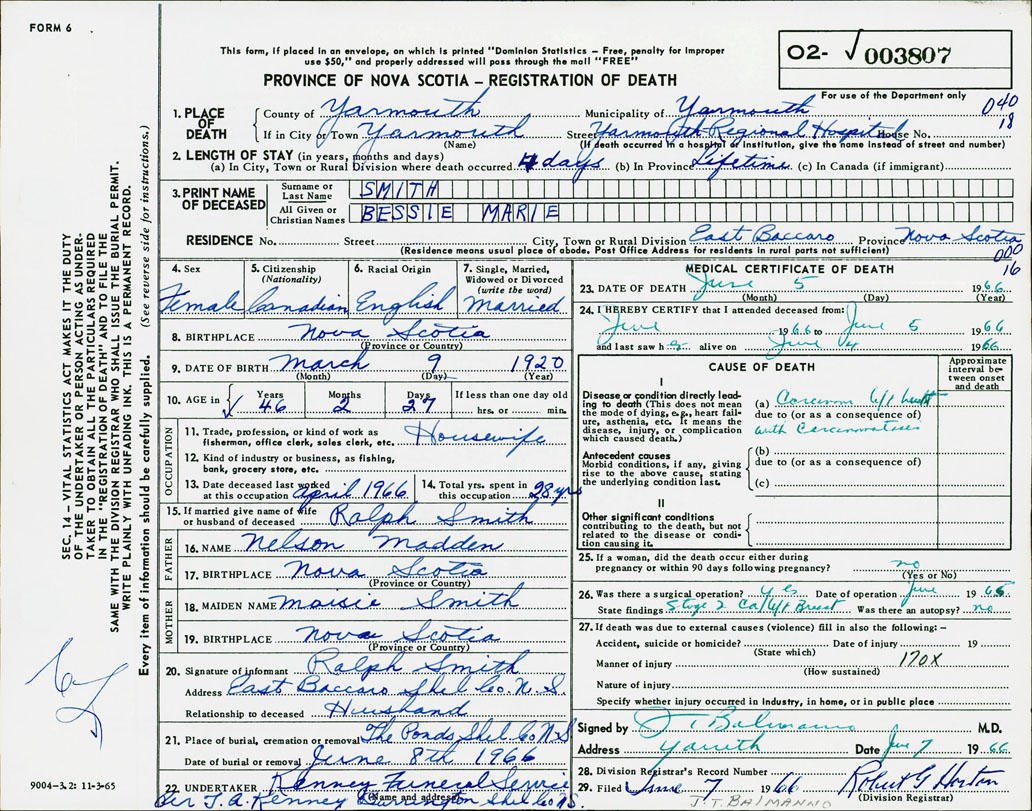 FORM 6
This form, if placed in an envelope, on which is printed "Dominion Statistics – Free, penalty for improper
use $50," and properly addressed will pass through the mail "FREE"
PROVINCE OF NOVA SCOTIA – REGISTRATION OF DEATH
02- √ 003807
For use of the Department only
040
18
1. PLACE OF DEATH
County of Yarmouth Municipality of Yarmouth
If in City or Town Yarmouth Street Yarmouth Regional Hospital House No.
(Name) (If death occurred in a hospital or institution, give the name instead of street and number)
2. LENGTH OF STAY (in years, months and days)
(a) In City, Town or Rural Division where death occurred 4 days (b) In Province Lifetime (c) In Canada (if immigrant)
3. PRINT NAME OF DECEASED
Surname or Last Name SMITH
All Given or Christian Names BESSIE MARIE
RESIDENCE No. Street City, Town or Rural Division East Baccaro Province Nova Scotia
(Residence means usual place of abode. Post Office Address for residents in rural parts not sufficient)
000
16
4. Sex Female
5. Citizenship (Nationality) Canadian
6. Racial Origin English
7. Single, Married, Widowed or Divorced (write the word) Married
8. BIRTHPLACE Nova Scotia
(Province or Country)
9. DATE OF BIRTH March 9 1920
(Month) (Day) (Year)
10. AGE in √ Years 46 Months 2 Days 27 If less than one day old hrs. or min.
OCCUPATION
11. Trade, profession, or kind of work as fisherman, office clerk, sales clerk, etc. Housewife
12. Kind of industry or business, as fishing, bank, grocery store, etc.
13. Date deceased last worked at this occupation April 1966
14. Total yrs. spent in this occupation 28 yrs
15. If married give name of wife or husband of deceased Ralph Smith
FATHER
16. NAME Nelson Madden
17. BIRTHPLACE Nova Scotia
(Province or Country)
MOTHER
18. MAIDEN NAME Maisie Smith
19. BIRTHPLACE Nova Scotia
(Province or Country)
20. Signature of informant Ralph Smith
Address East Baccaro Shel Co. N.S.
Relationship to deceased Husband
21. Place of burial, cremation or removal The Ponds Shel Co N.S
Date of burial or removal June 8th 1966
22. UNDERTAKER Kenney Funeral Service
(Name and address)
Per J. A. Kenney Shel Co N.S.
MEDICAL CERTIFICATE OF DEATH
23. DATE OF DEATH June 5 1966
(Month) (Day) (Year)
24. I HEREBY CERTIFY that I attended deceased from:
June 1966 to June 5 1966
and last saw her alive on June 4 1966
CAUSE OF DEATH
Approximate interval between onset and death
I
Disease or condition directly leading to death (This does not mean the mode of dying, e.g., heart failure, asthenia, etc. It means the disease, injury, or complication which caused death.)
(a) Carcinoma L/t breast
due to (or as a consequence of)
with Carcinomatosis
Antecedent causes
Morbid conditions, if any, giving rise to the above cause, stating the underlying condition last.
(b)
due to (or as a consequence of)
(c)
II
Other significant conditions
contributing to the death, but not related to the disease or condition causing it.
25. If a woman, did the death occur either during pregnancy or within 90 days following pregnancy? no
(Yes or No)
26. Was there a surgical operation? yes Date of operation June 1965
State findings Stage 2 Ca L/t Breast Was there an autopsy? no
27. If death was due to external causes (violence) fill in also the following: –
Accident, suicide or homicide? Date of injury 19
(State which)
Manner of injury 170X
(How sustained)
Nature of injury
Specify whether injury occurred in industry, in home, or in public place
Signed by J. T. Balmanno M.D.
Address Date June 7 1966
28. Division Registrar's Record Number
29. Filed June 7 1966 Robert G Horton
(Division Registrar)
J. T. BALMANNO
SEC. 14 – VITAL STATISTICS ACT MAKES IT THE DUTY
OF THE UNDERTAKER OR PERSON ACTING AS UNDER-
TAKER TO OBTAIN ALL THE PARTICULARS REQUIRED
IN THE "REGISTRATION OF DEATH" AND TO FILE THE
SAME WITH THE DIVISION REGISTRAR WHO SHALL ISSUE THE BURIAL PERMIT.
WRITE PLAINLY WITH UNFADING INK. THIS IS A PERMANENT RECORD.
Every item of information should be carefully supplied. (See reverse side for instructions.)
9004–3.2: 11-3-65